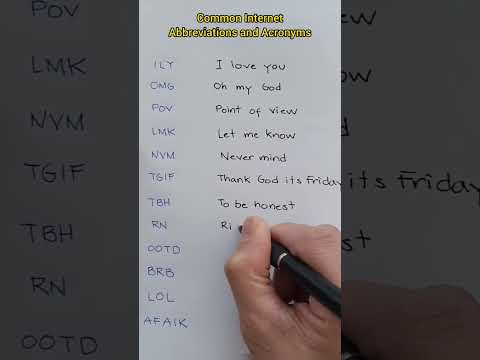 POV
LMK
NVM
TGIF
TBH
RN
OOTD
Common Internet
Abbreviations and Acronyms
ILY I love you
OMG Oh my God
POV Point of view
LMK Let me know
NVM Never mind
TGIF Thank God its Friday
TBH To be honest
RN Ri
OOTD
BRB
LOL
AFAIK
its Friday